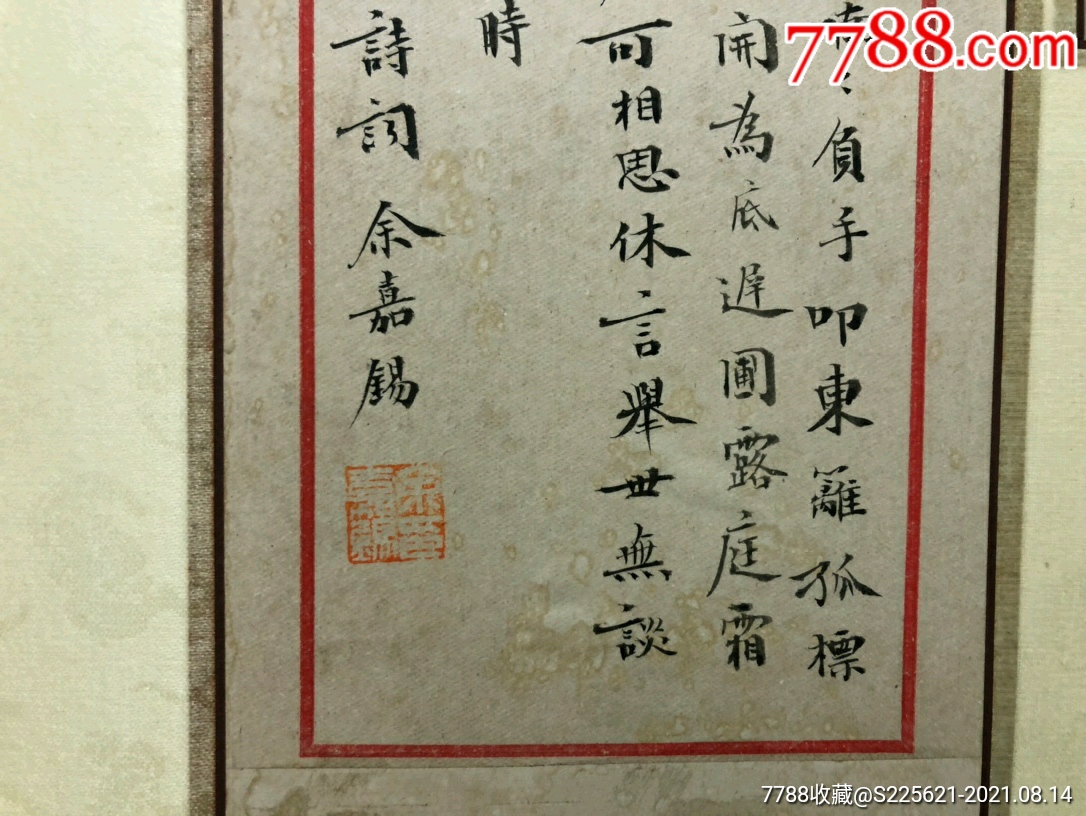 喃〻負手叩東籬孤標
開為底遲圃露庭霜
可相思休言舉世無談
時
詩詞余嘉錫
7788.com
7788收藏@S225621-2021.08.14